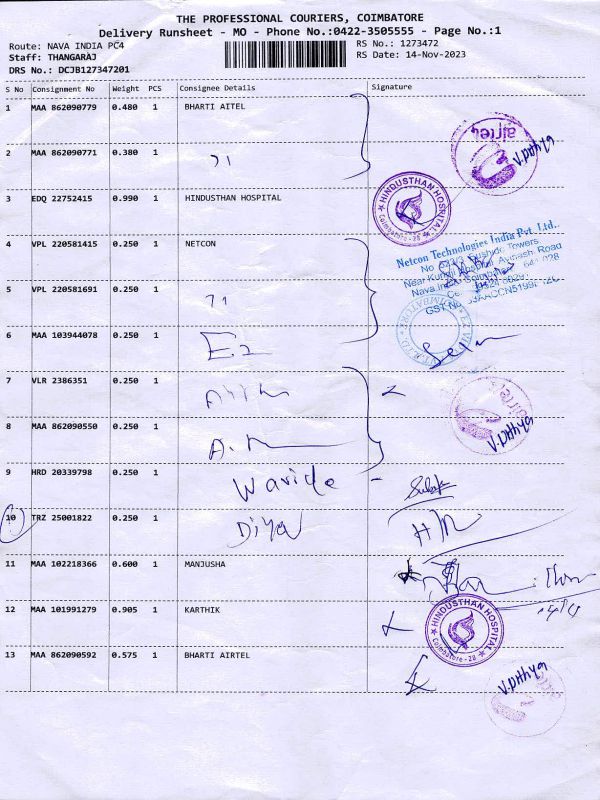 THE PROFESSIONAL COURIERS, COIMBATORE
Delivery Runsheet - MO - Phone No.:0422-3505555 - Page No.:1
Route: NAVA INDIA PC4 RS No.: 1273472
Staff: THANGARAJ RS Date: 14-Nov-2023
DRS No.: DCJB127347201
S No Consignment No Weight PCS Consignee Details Signature
1 MAA 862090779 0.480 1 BHARTI AITEL
airtel
V.DHAYA
2 MAA 862090771 0.380 1 71
3 EDQ 22752415 0.990 1 HINDUSTHAN HOSPITAL
HINDUSTHAN HOSPITAL
Coimbatore - 28
4 VPL 220581415 0.250 1 NETCON
Netcon Technologies India Pvt. Ltd.,
Towers
Near Avinash Road
Nava
GST No
5 VPL 220581691 0.250 1 71
6 MAA 103944078 0.250 1
7 VLR 2386351 0.250 1
airtel
8 MAA 862090550 0.250 1
9 HRD 20339798 0.250 1
10 TRZ 25001822 0.250 1 Diya
11 MAA 102218366 0.600 1 MANJUSHA
12 MAA 101991279 0.905 1 KARTHIK
HINDUSTHAN HOSPITAL
Coimbatore - 28
13 MAA 862090592 0.575 1 BHARTI AIRTEL